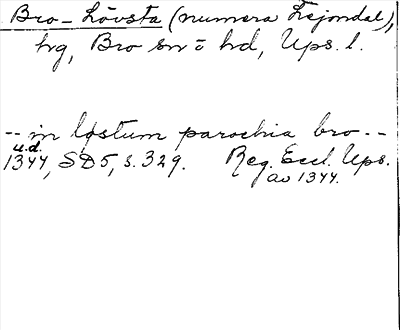 Bro-Lövsta (numera Lejondal),
hg, Bro sn o hd, Ups. l.
-- in løstum parochia bro --
u.d.
1344, SD5, s. 329. Reg. Eccl. Ups.
av 1344.